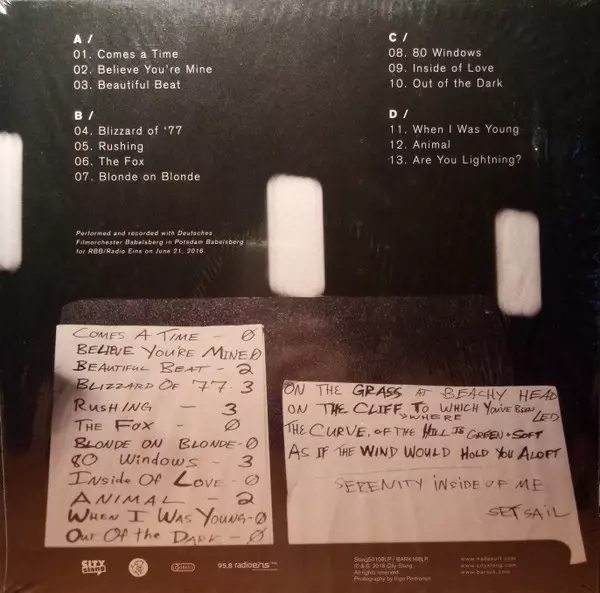 A /
01. Comes a Time
02. Believe You're Mine
03. Beautiful Beat
B /
04. Blizzard of '77
05. Rushing
06. The Fox
07. Blonde on Blonde
C /
08. 80 Windows
09. Inside of Love
10. Out of the Dark
D /
11. When I Was Young
12. Animal
13. Are You Lightning?
Performed and recorded with Deutsches
Filmorchester Babelsberg in Potsdam Babelsberg
for RBB/Radio Eins on June 21, 2016
COMES A TIME - Ø
BELIEVE YOU'RE MINE Ø
BEAUTIFUL BEAT - 2
BLIZZARD OF '77 - 3
RUSHING - 3
THE FOX - Ø
BLONDE ON BLONDE - Ø
80 WINDOWS - 3
INSIDE OF LOVE - Ø
ANIMAL - 2
WHEN I WAS YOUNG - Ø
OUT OF THE DARK - Ø
ON THE GRASS AT BEACHY HEAD
ON THE CLIFF TO WHICH YOU'VE BEEN LED
WHERE
THE CURVE OF THE HILL IS GREEN + SOFT
AS IF THE WIND WOULD HOLD YOU ALOFT
SERENITY INSIDE OF ME
SET SAIL
CITY slang
95.8 radioeins rbb
℗ & © 2016 City Slang
All rights reserved
www.nadasurf.com
www.cityslang.com
www.barsuk.com